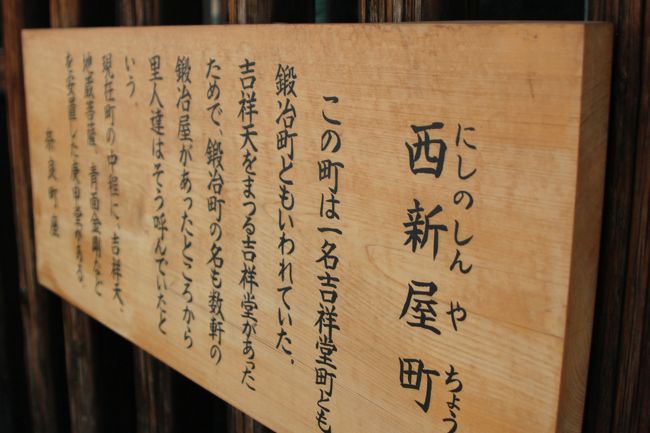 にしのしんやちょう
西新屋町
この町は一名吉祥堂町とも
鍛冶町ともいわれていた。
吉祥天をまつる吉祥堂があった
ためで、鍛冶町の名も数軒の
鍛冶屋があったところから
里人達はそう呼んでいたと
いう。
現在町の中程に、吉祥天、
地蔵菩薩、青面金剛など
を安置した庚申堂がある。
奈良町座